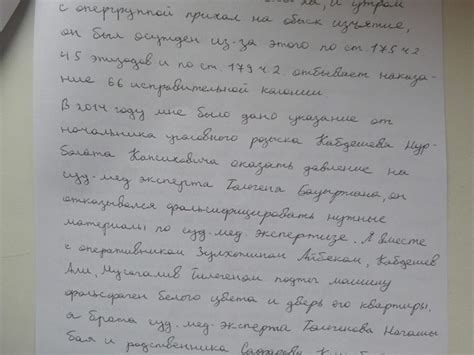 ха, и утром
с опергруппой приехал на обыск изъятие,
он был осужден из-за этого по ст. 175 ч 2
45 эпизодов и по ст. 179 ч. 2. отбывает наказа-
ние 66 исправительной колонии
В 2014 году мне было дано указание от
начальника уголовного розыска Кабдешева Нур-
болата Капсиховича оказать давление на
суд. мед эксперта Толегена Бауыржана, он
отказывался фальсифицировать нужные
материалы по суд. мед. экспертизе. Я вместе
с оперативником Зулхотином Айбеком, Кабдешев
Али, Мусагалив Тилегеном поджог машину
фольсфаген белого цвета и дверь его квартиры,
а брата суд. мед. эксперта Толегенова Нагашы
бая и родственника